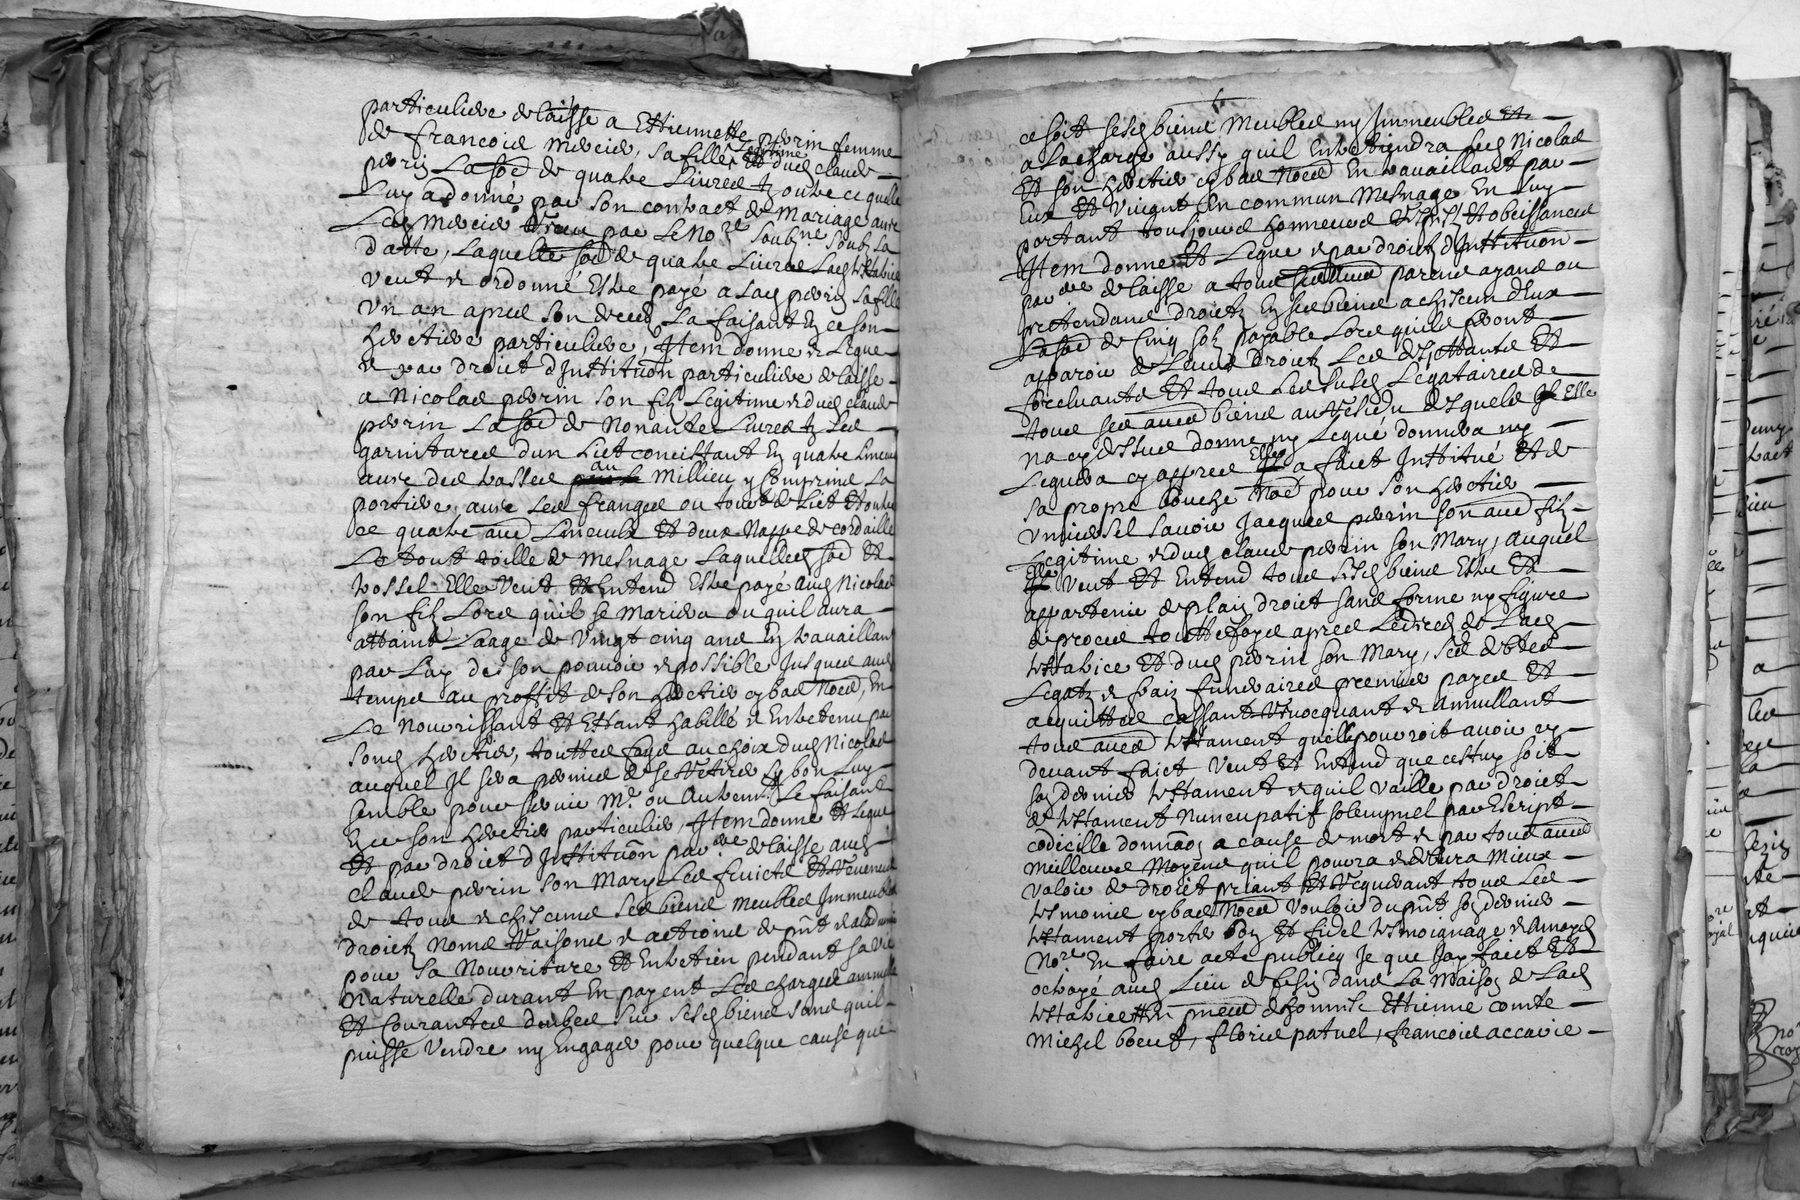 particuliere delaisse a Ettiennette perrin femme
de francois mercier, sa fille et dud claude
perrin La som de quatre Livres tz outre ce quelle
Luy a donné par son contract de Mariage avec
Led Mercier Receu par Le Nore soubné soubz sa
datte, Laquelle som de quatre Livres Lad testatrice
veut & ordonne Estre payé a Lad perrin sa fille
Un an apres son deces La faisant En ce son
heretiere particuliere, Item donne & Legue
& par droict dInstituon particuliere delaisse
a Nicolas perrin son filz Legitime & dud claude
perrin La som de Nonante Livres tz Les
garnitures dun Liet concistant En quatre Linceux
avec des trasses au Millieu y Comprins La
portiere, avec Les franges ou tour de Liet Et outre
ce quatre aues Linceulx Et deux Nappe de cordaille
Le tout toille de Mesnage Laquelle som Et
trossel Elle Veut Et Entend Estre payé aud Nicolas
son filz Lors quil se Mariera ou quil aura
attaint Laage de Vingt cinq ans En travaillant
par Luy de son pouvoir & possible Jusques aud
temps au proffit de son heretier cy bas Nommé, En
Le Nourrissant Et Estant habillé & Entretenu par
sond heretier, touttes foys au choix dud Nicolas
auquel Il sera permis de se Retirer Sy bon Luy
semble pour servir Me ou Autremt Le faisant
En ce son heretier particulier, Item donne Et Legue
Et par droict dInstituon parre delaisse aud
claude perrin son Mary Les fruicts Et Revenus
de tous & chascuns ses biens meubles Immeubles
droictz Noms Raisons & actions de pnt & advenir
pour sa Nourriture Et Entretien pendant sa vie
Naturelle durant En payent Les charges annuelle
Et Courantes deubes sur sesd biens sans quil
puisse Vendre ny Engager pour quelque cause que
ce soit sesd biens Meubles ny Immeubles Et
a La charge aussy quil Entretiendra Led Nicolas
Et son heretier cy bas Nommé En travaillant par
Eux Et Vivant En commun Mesnage En Luy
portant tousjours honneurs Et obeissances
Item donne Et Legue & par droict dInstituon
parre delaisse a tous parens ayans ou
prettendans droictz En ses biens a chascun dEux
La som de Cinq solz payable Lors quils feront
apparoir de Leurs droictz Les dejettants Et
forcluants Et tous Les susd Legataires de
tous ses aues biens au Residu desquels Elle
na cy dessus donne ny Legué donnera ny
Leguera cy appres Elle a faict Institué Et de
sa propre bouche nommé pour son heretier
Universel savoir Jacques perrin son aue filz
Legitime & dud claude perrin son Mary, auquel
Elle Veut Et Entend tous sesd biens Estre Et
appartenir de plain droict sans forme ny figure
de proces toutteffoys apres Le deces de Lad
testatrice Et dud perrin son Mary, ses debtes
Legatz & fraiz funeraires premier payes Et
acquittes cassant Revocquant & Annullant
tous aues testament quelle pourroit avoir cy
devant faict Veut Et Entend que cestuy soit
son dernier testament & quil vaille par droict
de testament Nuncupatif solempnel par Escript
codecille donnaon a cause de mort & par tous aues
meilleurs Moyens quil pourra & debvra Mieux
Valoir de droict priant Et Requerant tous Les
tesmoins cy bas Nommés Vouloir du pnt son dernier
testament porter bon Et fidel tesmoignage & A moyd
Nore En faire acte publicq Je que Jay faict Et
octroyé aud Lieu de dans La Maison de Lad
testatrice En pnces dhonneste Ettienne comte
Michel boeuf, florie patuel, francois accarie